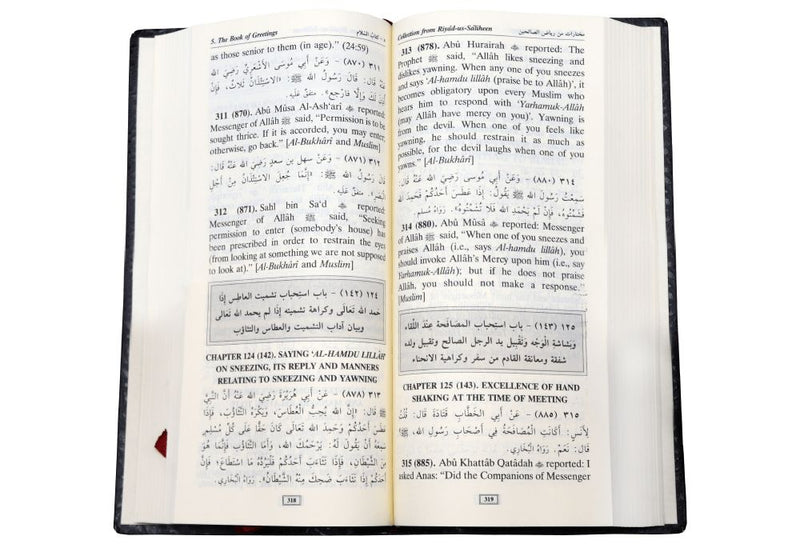 5. The Book of Greetings
٥ - كتاب السلام
as those senior to them (in age)." (24:59)
٣١١ (٨٧٠) - وَعَنْ أَبِي مُوسَى الْأَشْعَرِيِّ رَضِيَ اللهُ
عَنْهُ قَالَ: قَالَ رَسُولُ اللهِ ﷺ: «الاسْتِئْذَانُ ثَلَاثٌ، فَإِنْ
أُذِنَ لَكَ وَإِلَّا فَارْجِعْ». متفق عليه.
311 (870). Abû Mûsa Al-Ash'arî ﷺ reported:
Messenger of Allâh ﷺ said, "Permission is to be
sought thrice. If it is accorded, you may enter;
otherwise, go back." [Al-Bukhârî and Muslim]
٣١٢ (٨٧١) - وَعَنْ سهلِ بنِ سعدٍ رَضِيَ اللهُ عَنْهُ قَالَ:
قَالَ رَسُولُ اللهِ ﷺ: «إِنَّمَا جُعِلَ الاسْتِئْذَانُ مِنْ أَجْلِ
البَصَرِ». متفق عليه.
312 (871). Sahl bin Sa'd reported:
Messenger of Allâh ﷺ said, "Seeking
permission to enter (somebody's house) has
been prescribed in order to restrain the eyes
(from looking at something we are not supposed
to look at)." [Al-Bukhârî and Muslim]
١٢٤ (١٤٢) - باب استحباب تشميت العاطس إذا
حمد الله تعالى وكراهة تشميته إذا لم يحمد الله تعالى
وبيان آداب التشميت والعطاس والتثاؤب
CHAPTER 124 (142). SAYING 'AL-HAMDU LILLÂH'
ON SNEEZING, ITS REPLY AND MANNERS
RELATING TO SNEEZING AND YAWNING
٣١٣ (٨٧٨) - عَنْ أَبِي هُرَيْرَةَ رَضِيَ اللهُ عَنْهُ أَنَّ النَّبِيَّ
ﷺ قَالَ: «إِنَّ اللهَ يُحِبُّ الْعُطَاسَ، وَيَكْرَهُ التَّثَاؤُبَ، فَإِذَا
عَطَسَ أَحَدُكُمْ وَحَمِدَ اللهَ تَعَالَى كَانَ حَقًّا عَلَى كُلِّ مُسْلِمٍ
سَمِعَهُ أَنْ يَقُولَ لَهُ: يَرْحَمُكَ اللهُ، وَأَمَّا التَّثَاؤُبُ فَإِنَّمَا هُوَ
مِنَ الشَّيْطَانِ، فَإِذَا تَثَاءَبَ أَحَدُكُمْ فَلْيَرُدَّهُ مَا اسْتَطَاعَ؛ فَإِنَّ
أَحَدَكُمْ إِذَا تَثَاءَبَ ضَحِكَ مِنْهُ الشَّيْطَانُ». رَوَاهُ البُخَارِي.
318
Collection from Riyâd-us-Sâliheen
مختارات من رياض الصالحين
313 (878). Abû Hurairah reported: The
Prophet ﷺ said, "Allâh likes sneezing and
dislikes yawning. When any of you sneezes
and says 'Al-hamdu lillâh (praise be to Allâh)', it
becomes obligatory upon every Muslim who
hears him to respond with 'Yarhamuk-Allâh
(may Allâh have mercy on you)'. Yawning is
from the devil. When one of you feels like
yawning, he should restrain it as much as
possible, for the devil laughs when one of you
yawns." [Al-Bukhârî]
٣١٤ (٨٨٠) - وَعَنْ أَبِي مُوسَى رَضِيَ اللهُ عَنْهُ قَالَ:
سَمِعْتُ رَسُولَ اللهِ ﷺ يَقُولُ: إِذَا عَطَسَ أَحَدُكُمْ فَحَمِدَ اللهَ
فَشَمِّتُوهُ، فَإِنْ لَمْ يَحْمَدِ اللهَ فَلَا تُشَمِّتُوهُ». رَوَاهُ مُسلِم.
314 (880). Abû Mûsâ reported: Messenger
of Allâh ﷺ said, "When one of you sneezes and
praises Allâh (i.e., says Al-hamdu lillâh), you
should invoke Allâh's Mercy upon him (i.e., say
Yarhamuk-Allâh); but if he does not praise
Allâh, you should not make a response."
[Muslim]
١٢٥ (١٤٣) - باب استحباب المصافحة عِنْدَ اللِّقاء
وَبَشَاشَةِ الْوَجْهِ وَتَقْبِيل يد الرجل الصالح وتقبيل ولده
شفقة ومعانقة القادم من سفر وكراهية الانحناء
CHAPTER 125 (143). EXCELLENCE OF HAND
SHAKING AT THE TIME OF MEETING
٣١٥ (٨٨٥) - عَنْ أَبِي الْخَطَّابِ قَتَادَةَ قَالَ: قُلْتُ
لِأَنَسٍ: أَكَانَتِ الْمُصَافَحَةُ فِي أَصْحَابِ رَسُولِ اللهِ ﷺ؟
قَالَ: نَعَمْ. رَوَاهُ الْبُخَارِي.
315 (885). Abû Khattâb Qatâdah reported: I
asked Anas: "Did the Companions of Messenger
319